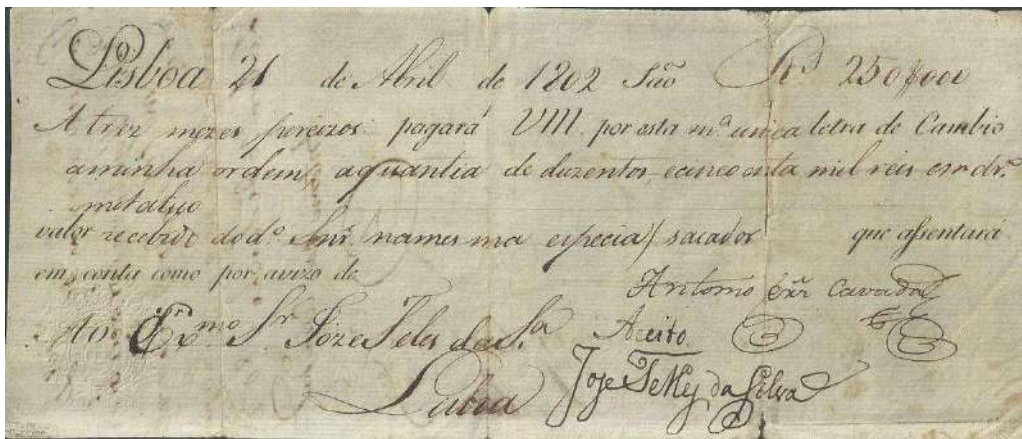 Lisboa 21 de Abril de 1802 São Rs 250$000
A trez mezes percizos pagará VIII por esta mª unica letra de Cambio
aminha ordem, aquantia de duzentos, ecincoenta mil reis em drº
metalico
valor recebido do dº Snr (na mesma especia) sacador que assentará
em conta como por avizo de
Antonio Cavada
Ao Sr Joze Teles da Sª Aceito
Joze Telles da Silva